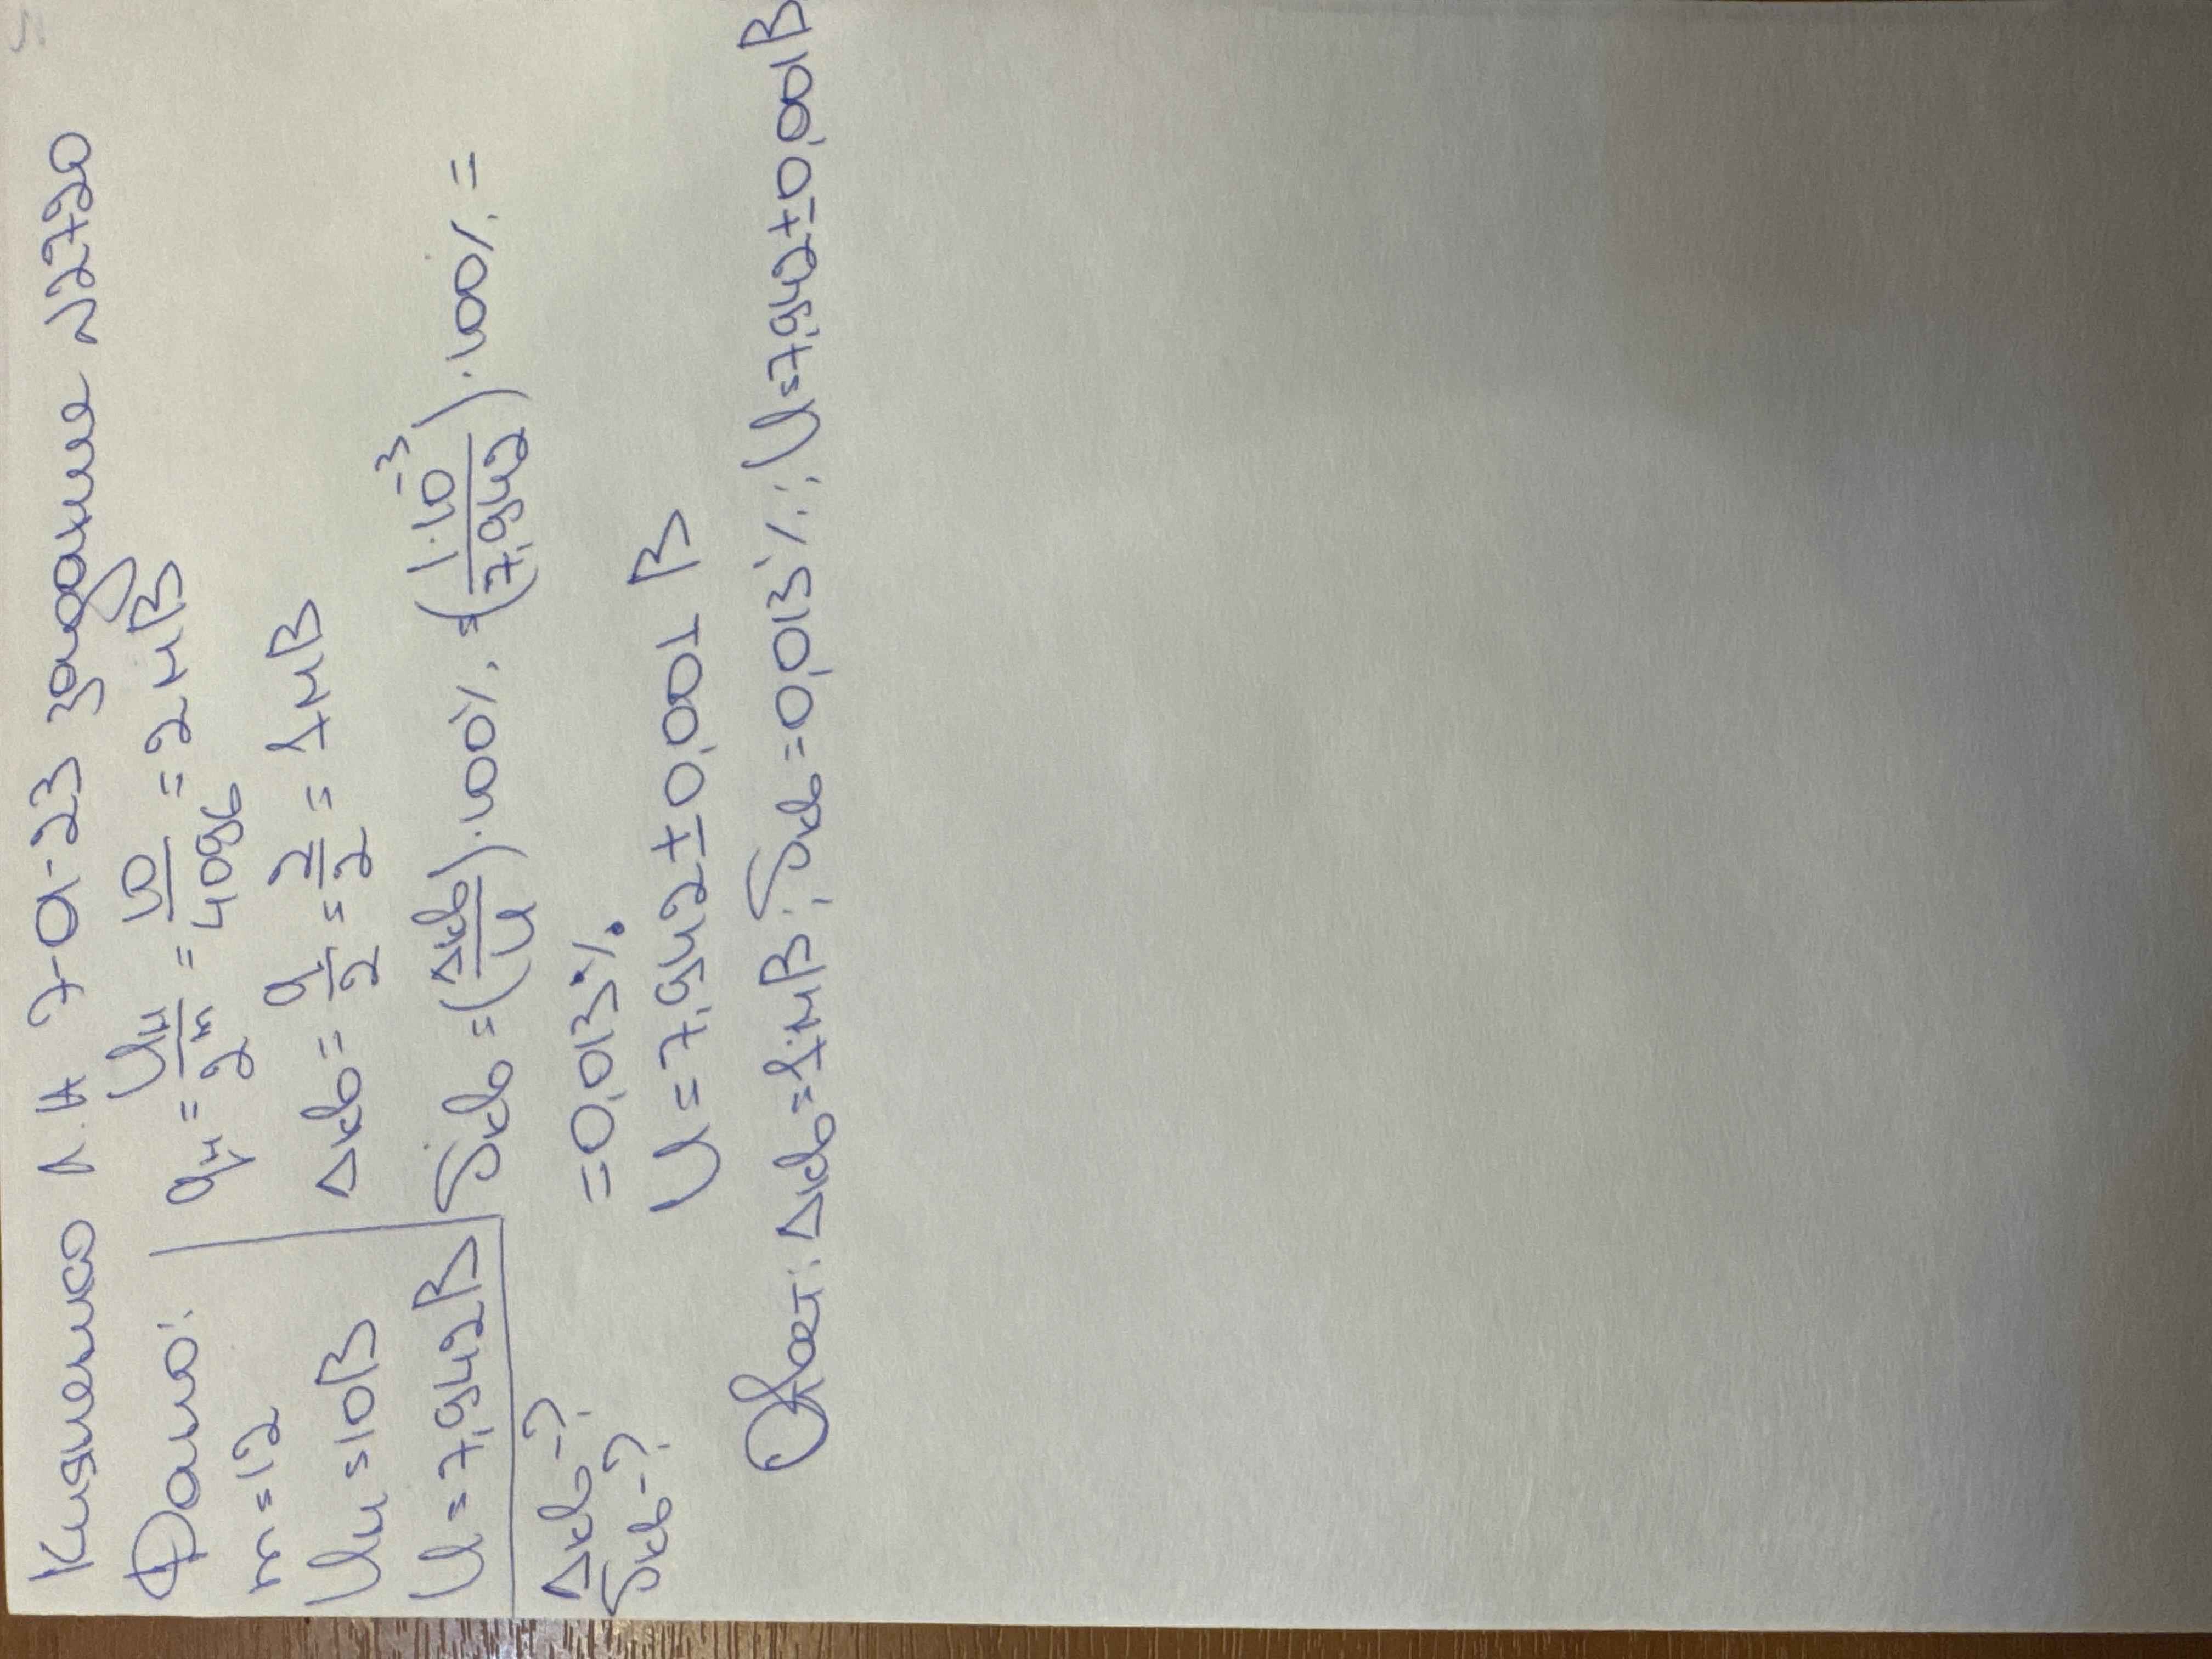 Кизненко А.А 7-01-23 задание N2720
Дано:
m=12
Uм=10В
U=7,942В
Δкв-?
δкв-?
qм = Uм/2^m = 10/4096 = 2 мВ
Δкв = q/2 = 2/2 = 1 мВ
δкв = (Δкв/U)·100% = (1·10^-3/7,942)·100% =
=0,013%
U=7,942±0,001 В
Ответ: Δкв=1мВ; δкв=0,013%; U=7,942±0,001В